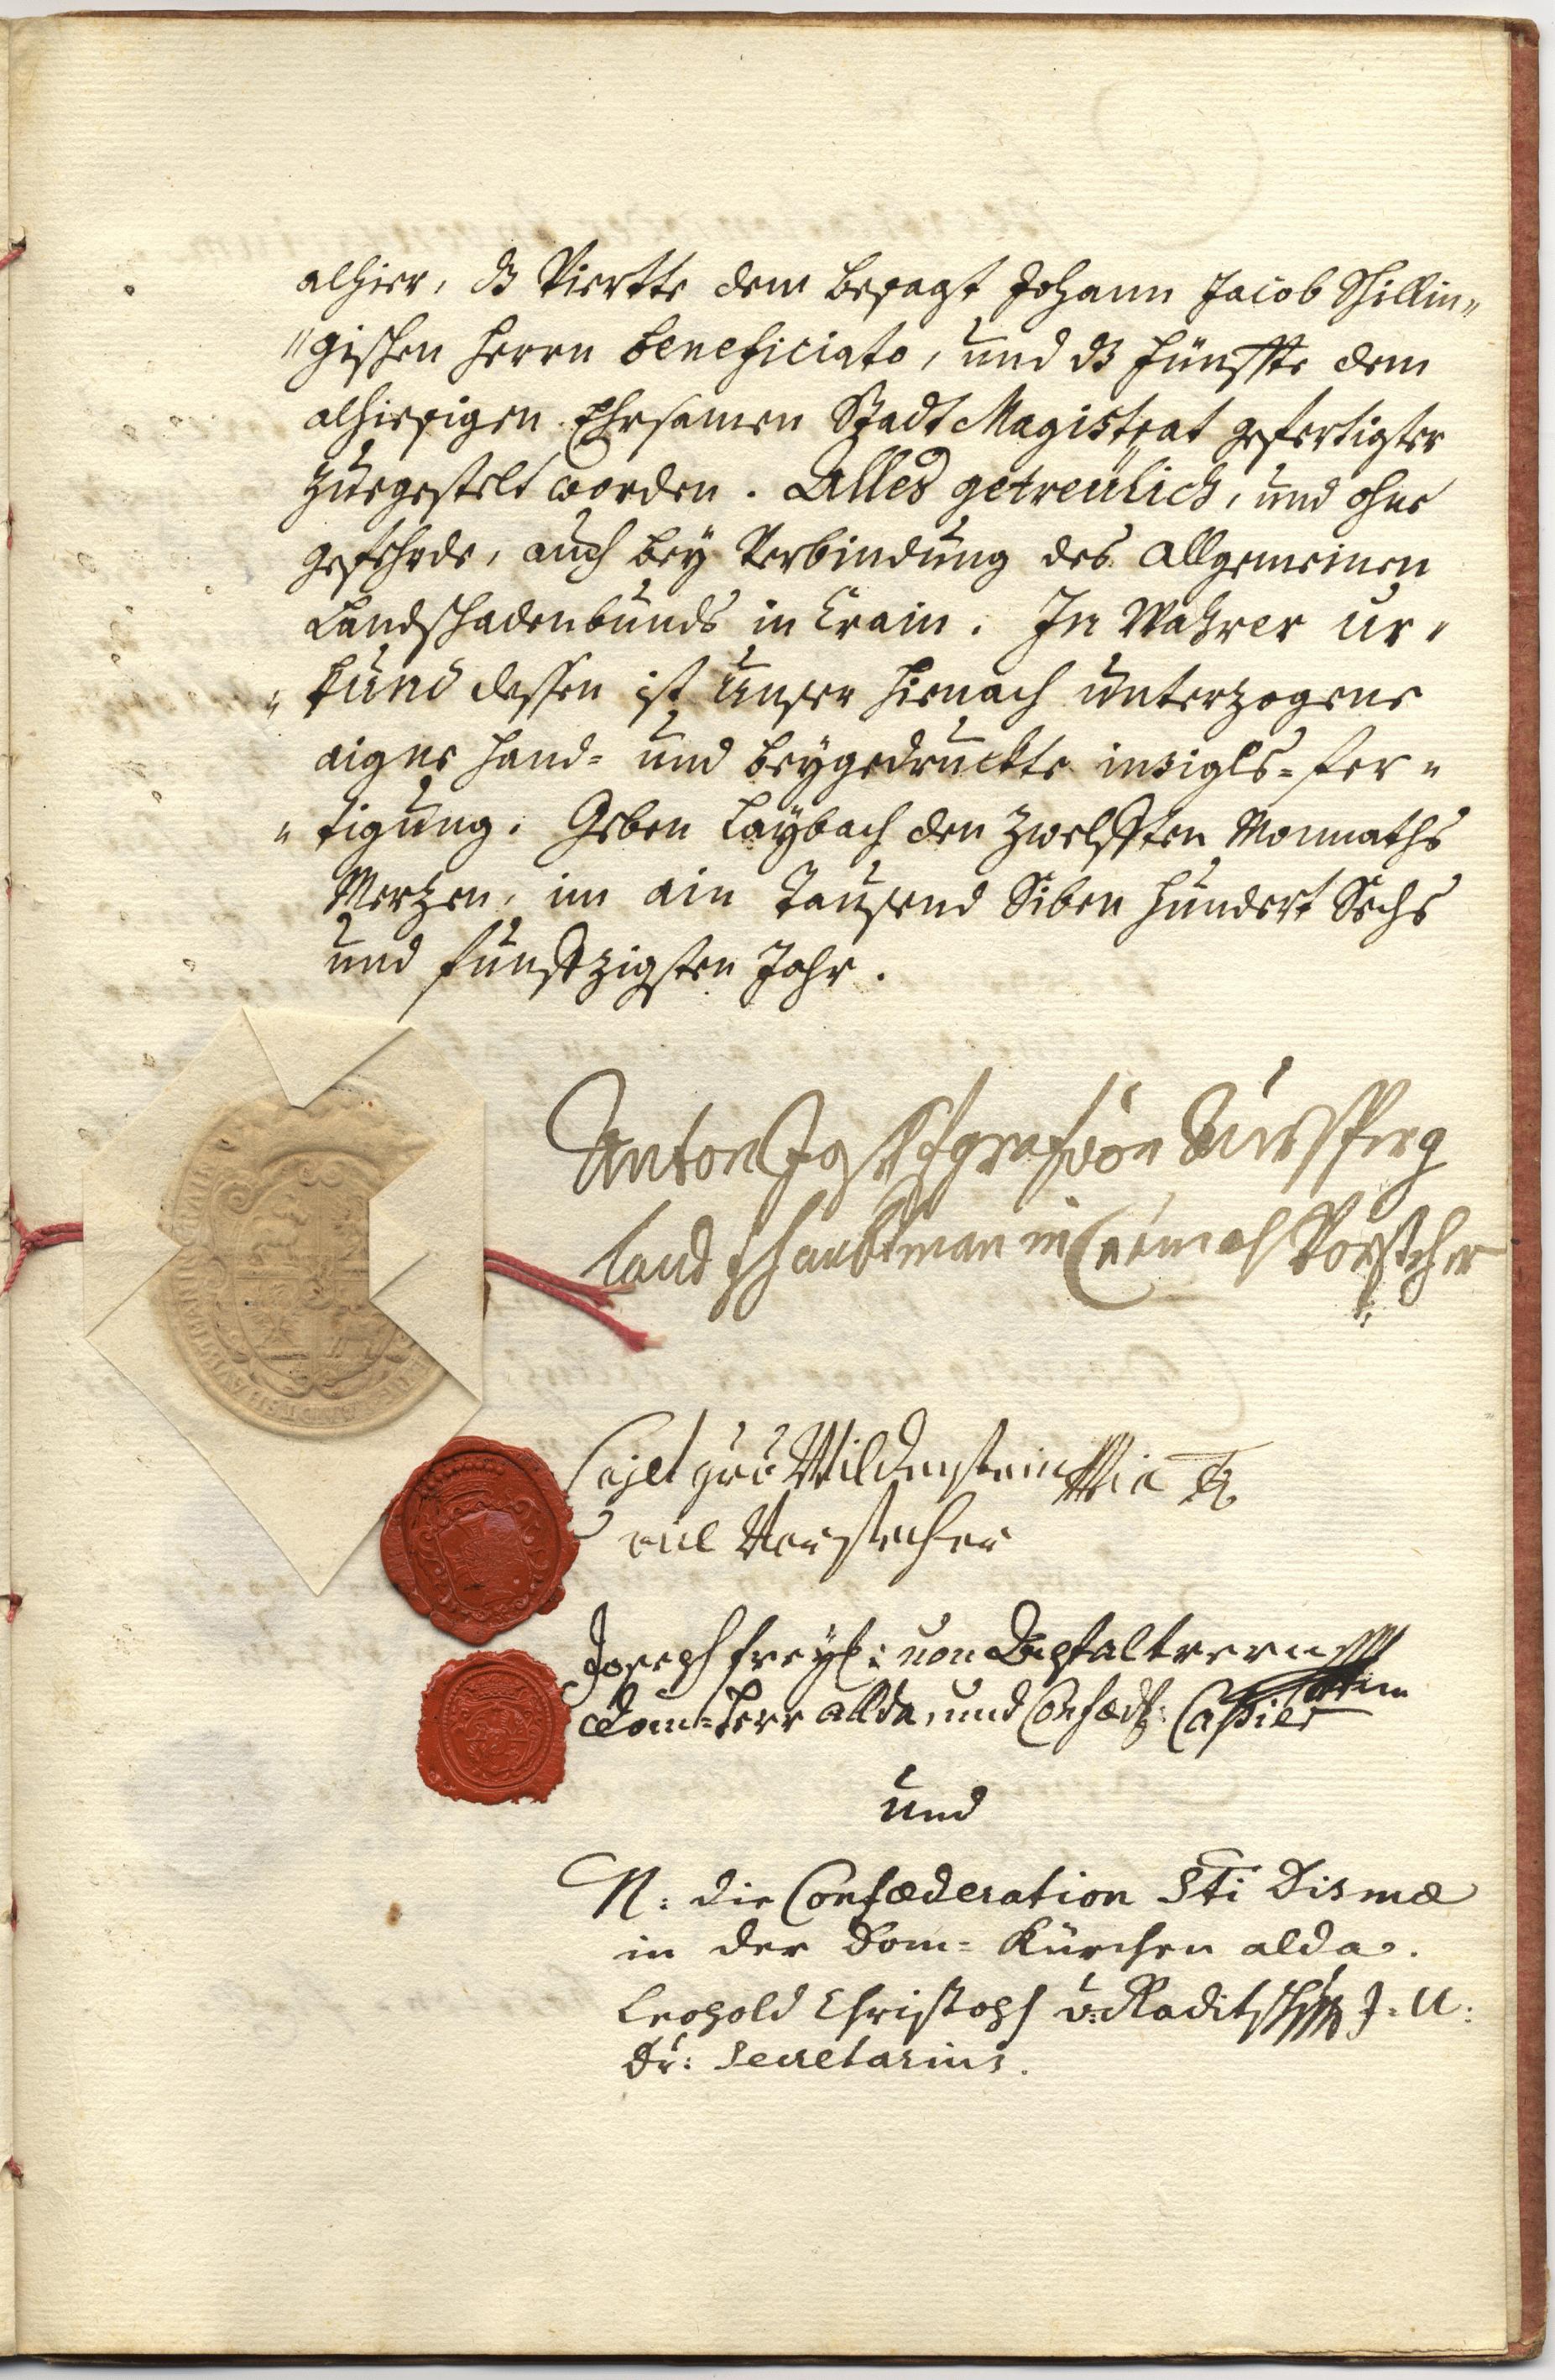 alhier, dz Viertte dem besagt Johann Jacob Schillin„
„gischen Herrn beneficiato, und dz fünffte dem
alhiesigen Ehrsamen Stadt Magistrat gefertigter
zuegestelt worden. Alles getreulich, und ohne
gefehrde, auch bey Verbindung des allgemeinen
Landschadenbunds in Crain. In Wahrer ur„
„kund dessen ist unser hienach unterzogene
aigne hand= und beygedruckte insigls=fer„
„tigung. Geben Laybach den zwelfften Monnaths
Mertzen, im ain Tausend Siben hundert Sechs
und funffzigsten Jahr.
Anton Joseph graf von Aursperg
landtshaubtman in Crain als Vorsteher
zu Wildenstein
Vorsteher
Joseph freyh: von Apfaltrern
Dom=herr allda, und Confoed: Cassier
und
N: die Confœderation Sti Dismæ
in der Dom=Kürchen alda.
Leopold Christoph v: Raditsch J: U:
Dr: Secretarius.